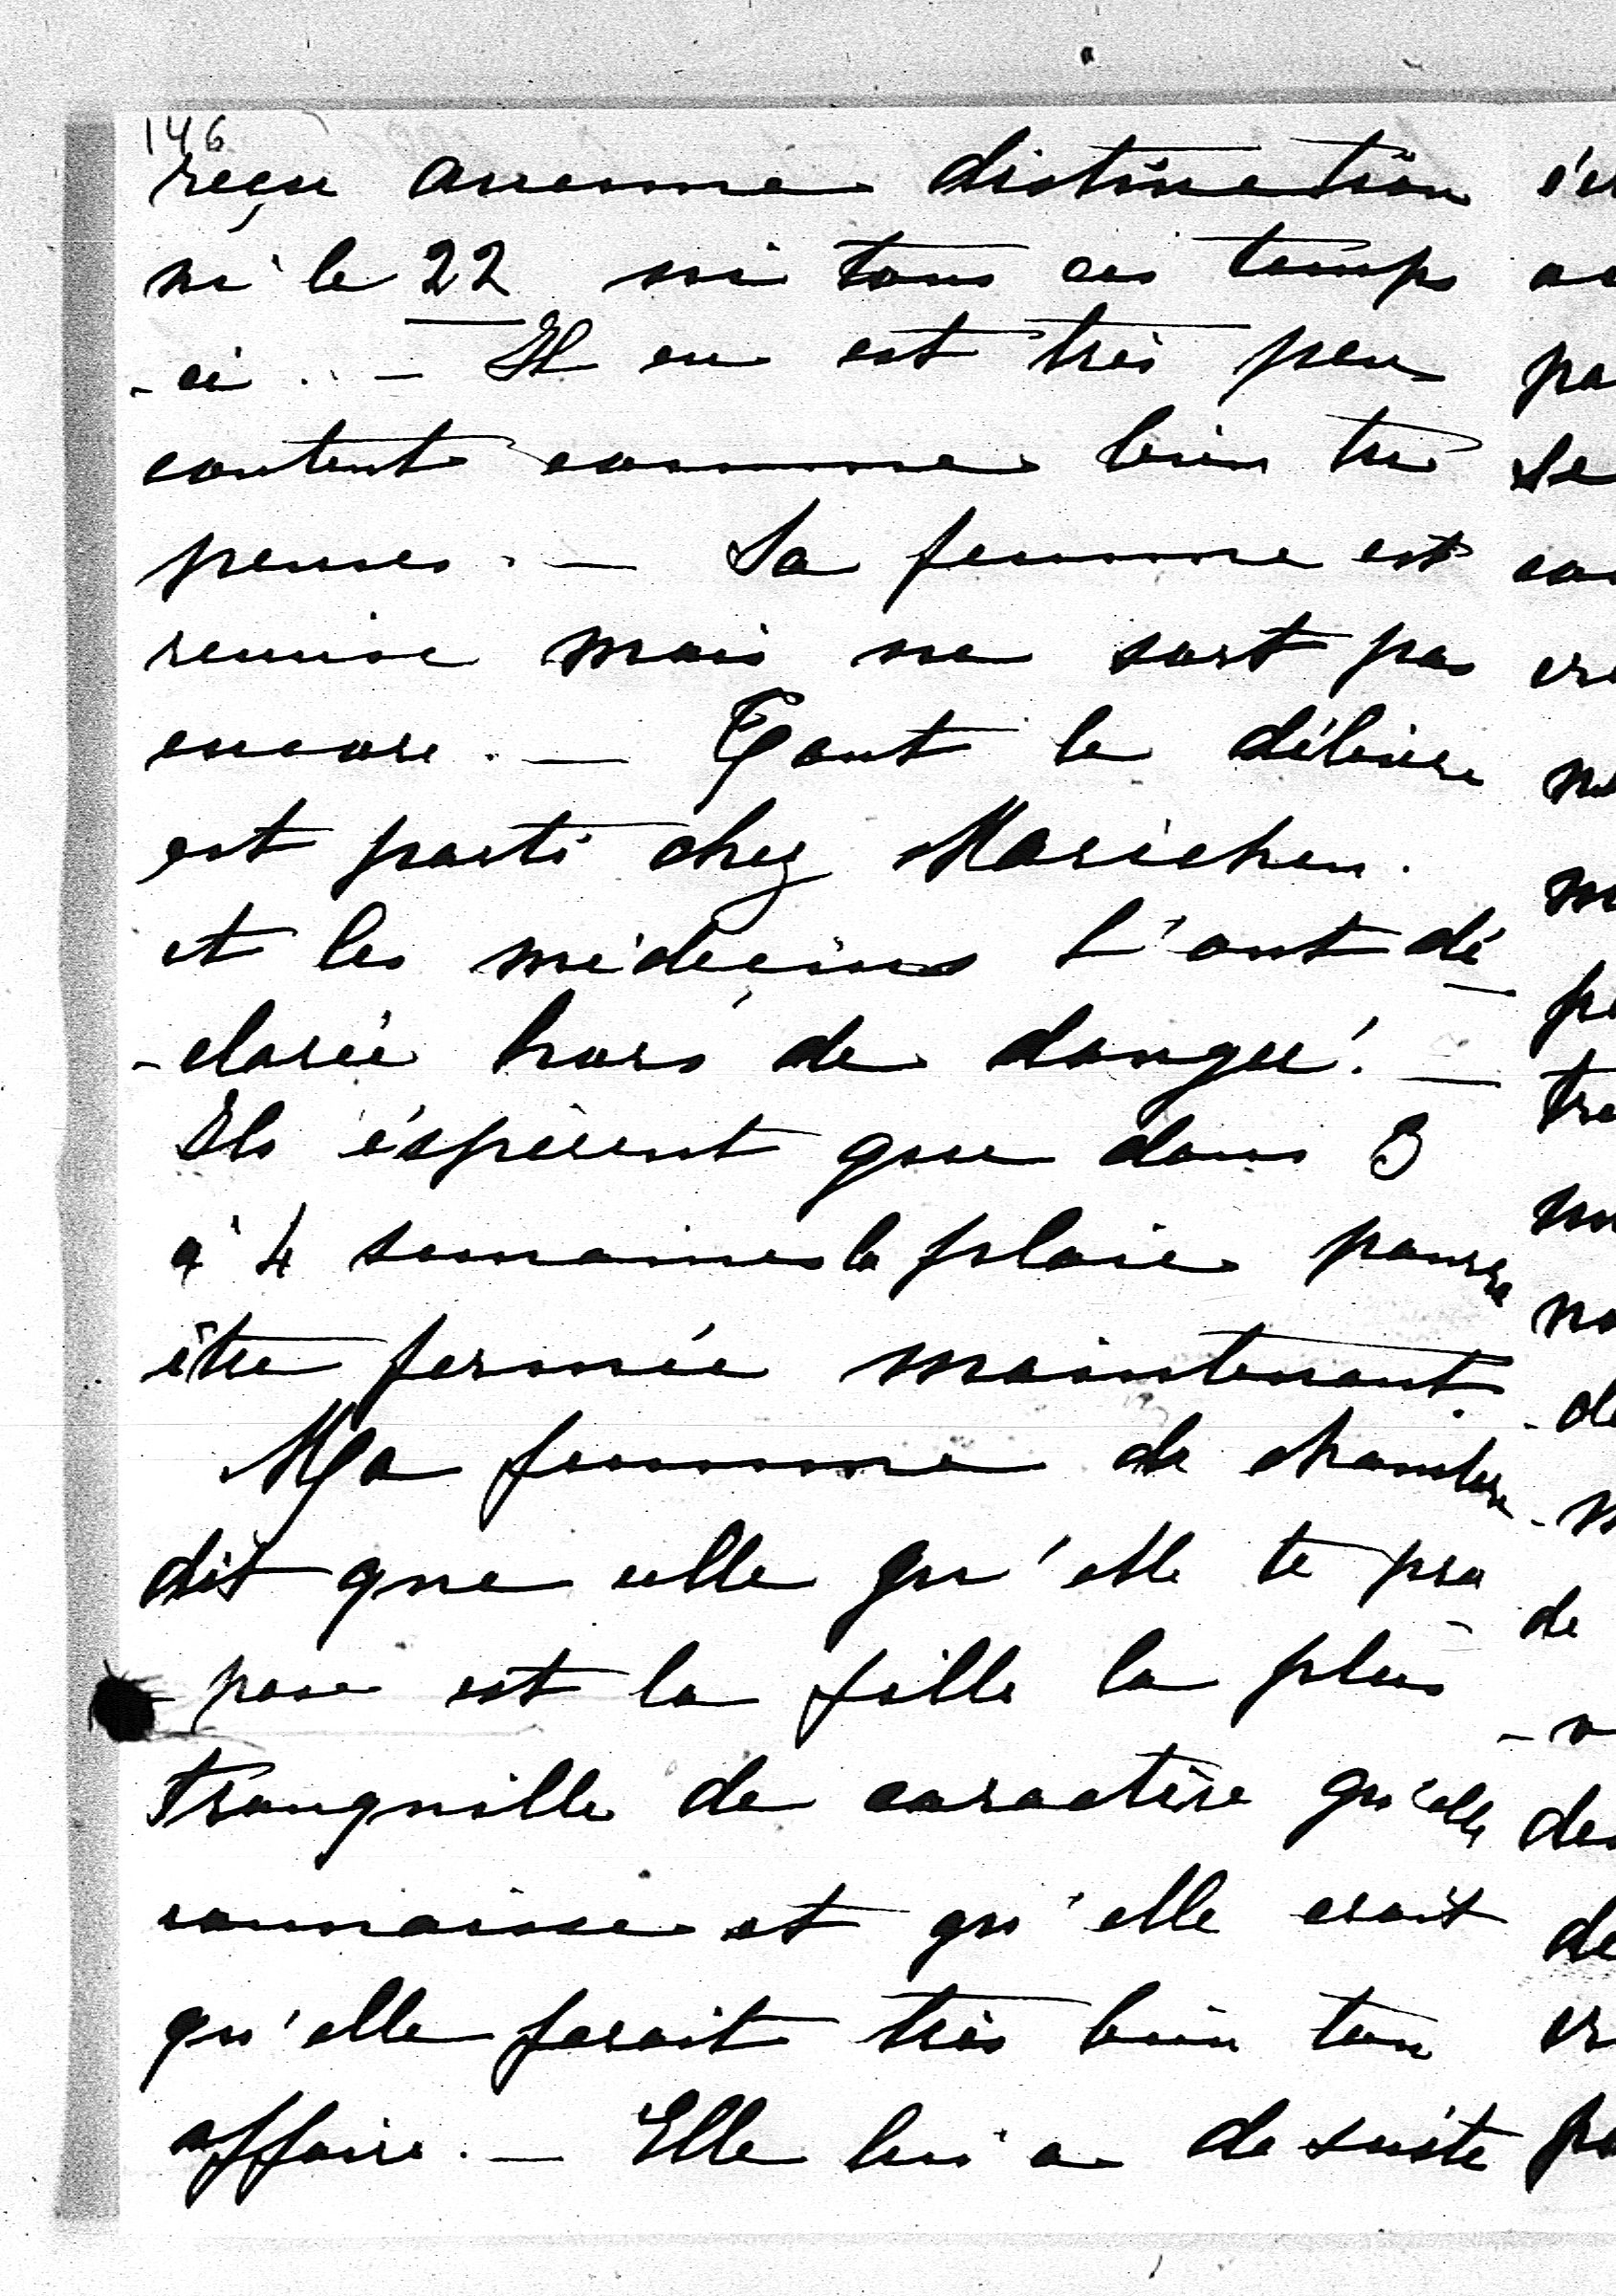 146
reçu aucune distinction
ni le 22 ni tous ces temps
-ci. - Il en est très peu
content comme bien tu
penses. - Sa femme est
remise mais ne sort pas
encore. - Tout le délire
est parti chez Mariehen.
et les médecins l'ont dé
-clarée hors de danger! -
Ils éspèrent que dans 3
à 4 semaines la plaie pourra
être fermée maintenant.
Ma femme de chambre
dit que celle qu'elle te pro
-pose est la fille la plus
tranquille de caractère qu'elle
connaisse et qu'elle croit
qu'elle ferait très bien ton
affaire. - Elle lui a de suite